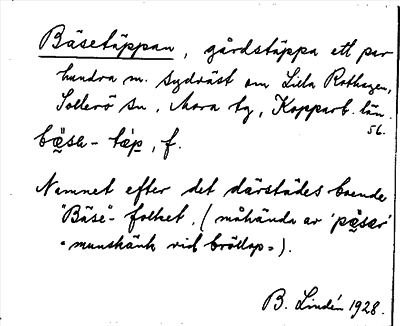 Bäsetäppan, gårdstäppa ett par
hundra m. sydväst om Lilla Rothagen,
Sollerö sn, Mora tg, Kopparb. län.
56.
bäsa-täp, f.
Namnet efter det därstädes boende
"Bäse"-folket. (måhända av 'päser'
"munskänk vid bröllop").
B. Lindén 1928.